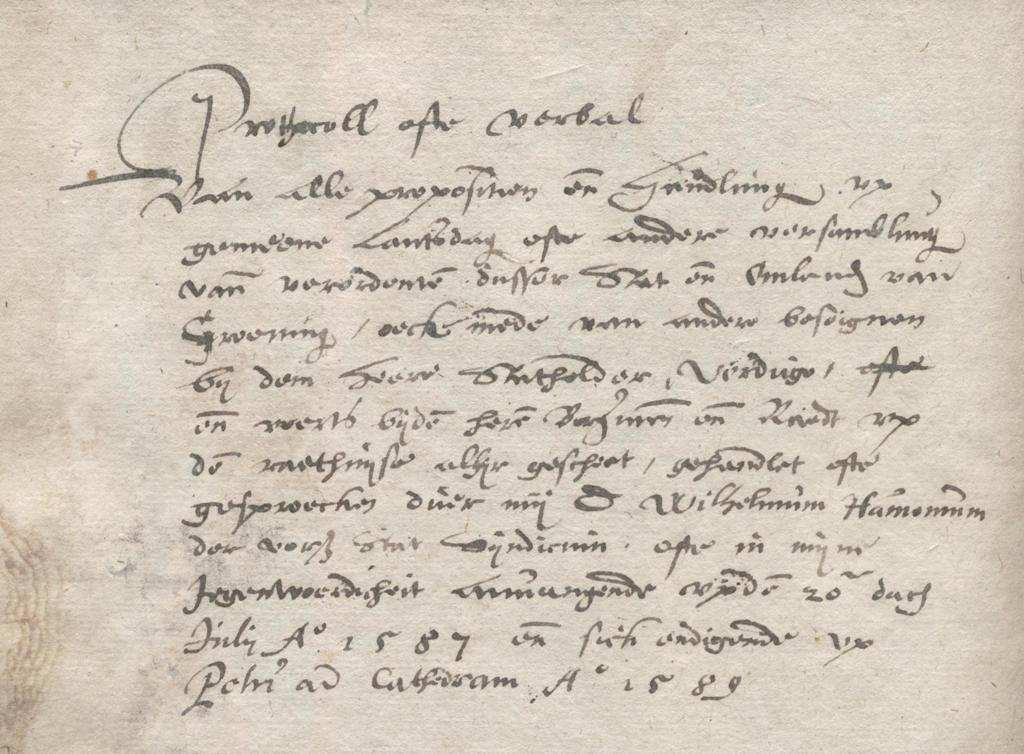 Prothocoll ofte verbal
Van alle proposition en̄ handlung up
gemeene Lantsdag ofte andere versamblung
van̄ verordentē dusser Stat en̄ Omland van
Groening, oeck mede van andere besoignen
bij dem heere Statholder, Verdugo, ofte
en̄ voerts bijdē herē Borgmēn en̄ Raedt up
dē raethuyse alhyr gescheet, gehandlet ofte
gesproecken duer mij D Wilhelmum Hamonium
der vorß Stat Syndicum, ofte in mijne
Jegenwoerdicheit Anuangende upden 20 dach
Julij A° 1587 en̄ sick endigende up
Petri ad Cathedram A° 1589